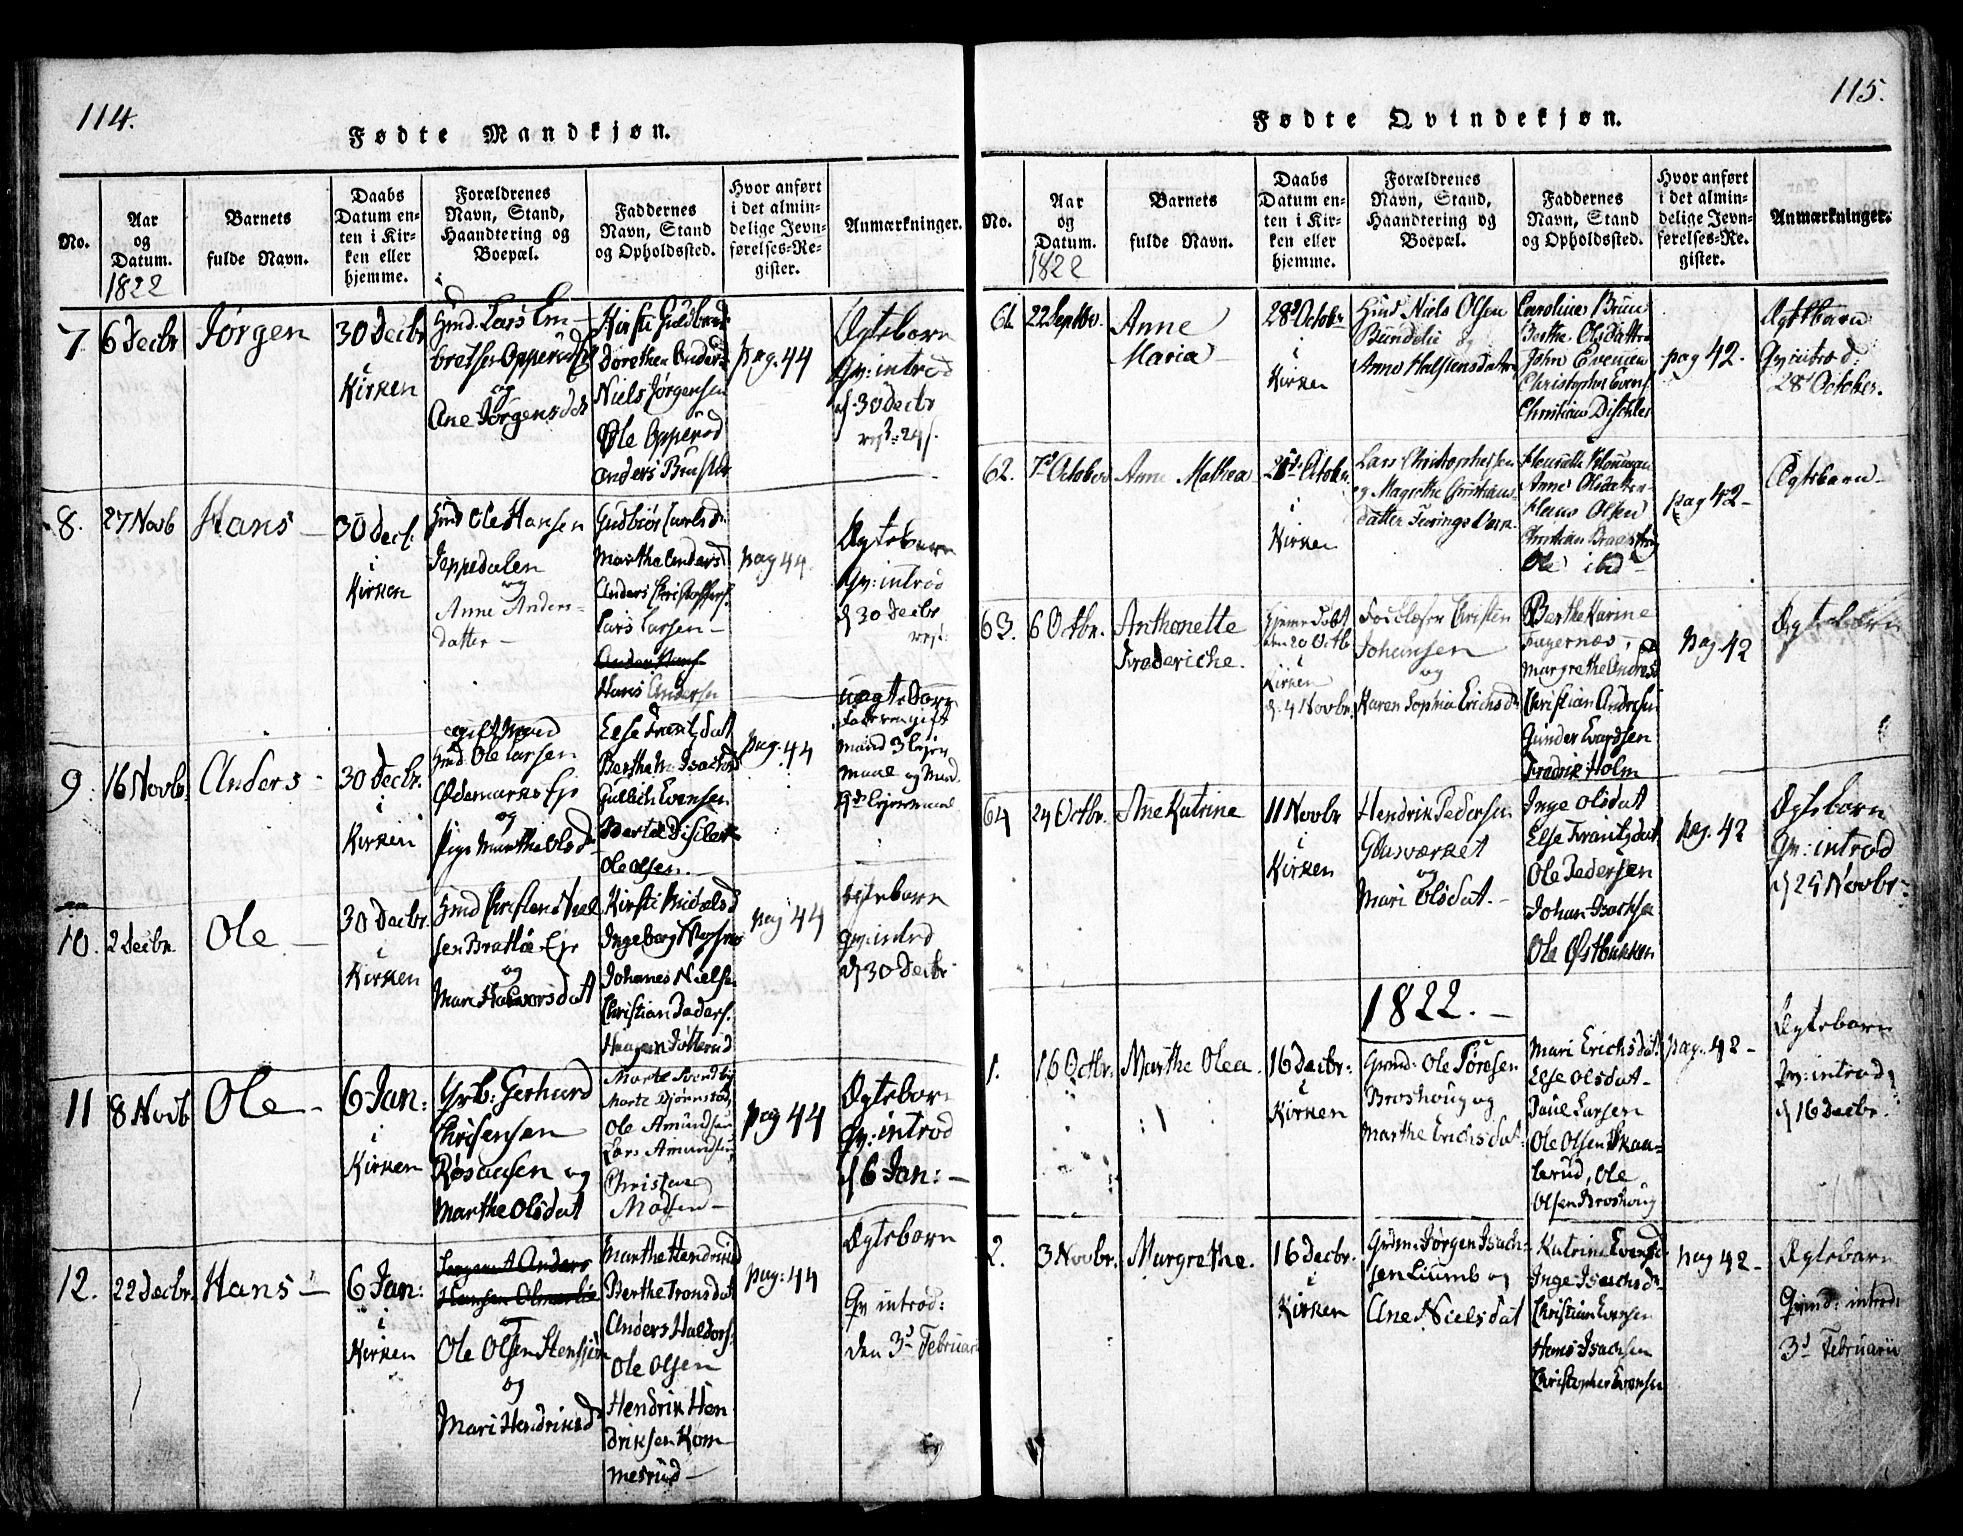 114.
Fødte Mandkjøn.
No.
Aar
og
Datum.
1822
Barnets
fulde Navn.
Daabs
Datum en-
ten i Kir-
ken eller
hjemme.
Forældrenes
Navn, Stand,
Haandtering og
Boepæl.
Faddernes
Navn, Stand
og Opholdssted.
Hvor anført
i det almin-
delige Jevn-
førelses-Re-
gister.
Anmærkninger.
7 6 Decbr
Jørgen
30 Decbr
i
Kirken
Gmd. Lars Em-
bretsen
og
Ane Jørgensdat
Kirsti
Dorethea
Niels Jørgensen
Ole Opperød
Anders
pag. 44
Ægtebarn
Qv: introd
d. 30 Decbr
8. 27 Novb
Hans
30 Decbr
i
Kirken
Gmd Ole Hansen
Jeppedalen
og
Anne Anders-
datter
Marthe Andersd
Anders Christophers.
Lars Larsen
Hans Andersen
pag 44
Ægtebarn
Qv: introd
d. 30 Decbr
9. 16 Novbr
Anders
30 Decbr.
i
Kirken
Ole Larsen
Ødemarks Eje
og
Pige Marthe Olsd
Else Frantzdat
Berthe M. Isachsd
Gulbich Evensen
Ole Olsen
pag. 44
uægtebarn
10. 2 Decbr.
Ole
30 Decbr.
i
Kirken
Gmd Christen Niel
sen Eje
og
Mari Halvorsdat
Kirsti
Ingeborg
Johanes Nielsen
Christian Peders.
pag 44
Ægtebarn
Qv: introd
d. 30 Decbr
11 8 Novb
Ole
6 Jan:
i
Kirken
Gerhard
Chrisensen
og
Marthe Olsdat
Ole Amundsen
Lars Amundsen
Christen
Madsen
pag 44
Ægtebarn
Qv: introd
d. 6 Jan:
12. 22 Decbr.
Hans
6 Jan:
i
Kirken
Ole Olsen
og
Mari Hendriksd
Marthe Hendriksd
Berthe Tronsdat
Anders Haldors.
Ole Olsen
Hendrik Hen
driksen Kom
mesrud
pag: 44
Ægtebarn
Qv introd:
den 3d Februari
115.
Fødte Qvindekjøn.
No.
Aar
og
Datum.
1822
Barnets
fulde Navn.
Daabs
Datum en-
ten i Kir-
ken eller
hjemme.
Forældrenes
Navn, Stand,
Haandtering og
Boepæl.
Faddernes
Navn, Stand
og Opholdssted.
Hvor anført
i det almin-
delige Jevn-
førelses-Re-
gister.
Anmærkninger.
61 22 Septbr.
Anne
Maria
28d Octobr
i
Kirken
Gmd Niels Olsen
Bundelie og
Anne Halstensdatter
Caroline Bruu
Berthe Olsdatter
John Evensen
Christopher Evens.
pag 42.
Ægtebarn
Qv: introd:
28d October.
62. 7d Octobr
Anne Mathea
i
Kirken
Lars Christophersen
og Magrethe Christians-
datter
Anne Olsdatter
Hans Olsen
Christian
Ole ibd
pag 42
Ægtebarn
63. 6 Octbr.
Anthonette
Frederiche.
Hjemmedøbt
den 20 Octb
i
Kirken
d. 4 Novbr.
Christen
Johansen
og
Karen Sophia Erichsd
Berthe Karine
Fagernæs,
Margrethe Andresd
Christian Andresen
Gunder Evardsen
Fredrik Holm
pag. 42
Ægtebarn
64 24 Octbr.
Ane Katrine
11 Novbr
i
Kirken
Hendrik Pedersen
Glasværket
og
Mari Olsdat.
Inge Olsdat
Else Frantzdat.
Ole Pedersen
Johan Isachsen
Ole Østbakken
pag. 42
Ægtebarn
Qv: introd
d. 24 Novbr.
1822.
1. 16 Octbr.
Marthe Olea.
16 Decbr:
i
Kirken
Grmd: Ole Torosen
Broshoug og
Marthe Erichsdat.
Mari Erichsdat.
Else Olsdat
Paul Larsen
Ole Olsen Skaa-
lerud, Ole
Olsen Broshoug
pag. 42
Ægtebarn
Qv: introd:
d. 16 Decbr.
2. 3 Novbr.
Margrethe.
16 Decbr.
i
Kirken
Grdm: Jørgen Isach-
sen Liumb og
Ane Nielsdat
Katrine Evensd
Inge Isachsdr
Christian Evensen
Hans Isachsen
Christopher Evensen
pag 42
Ægtebarn
Qvind: introd:
3d Februarii